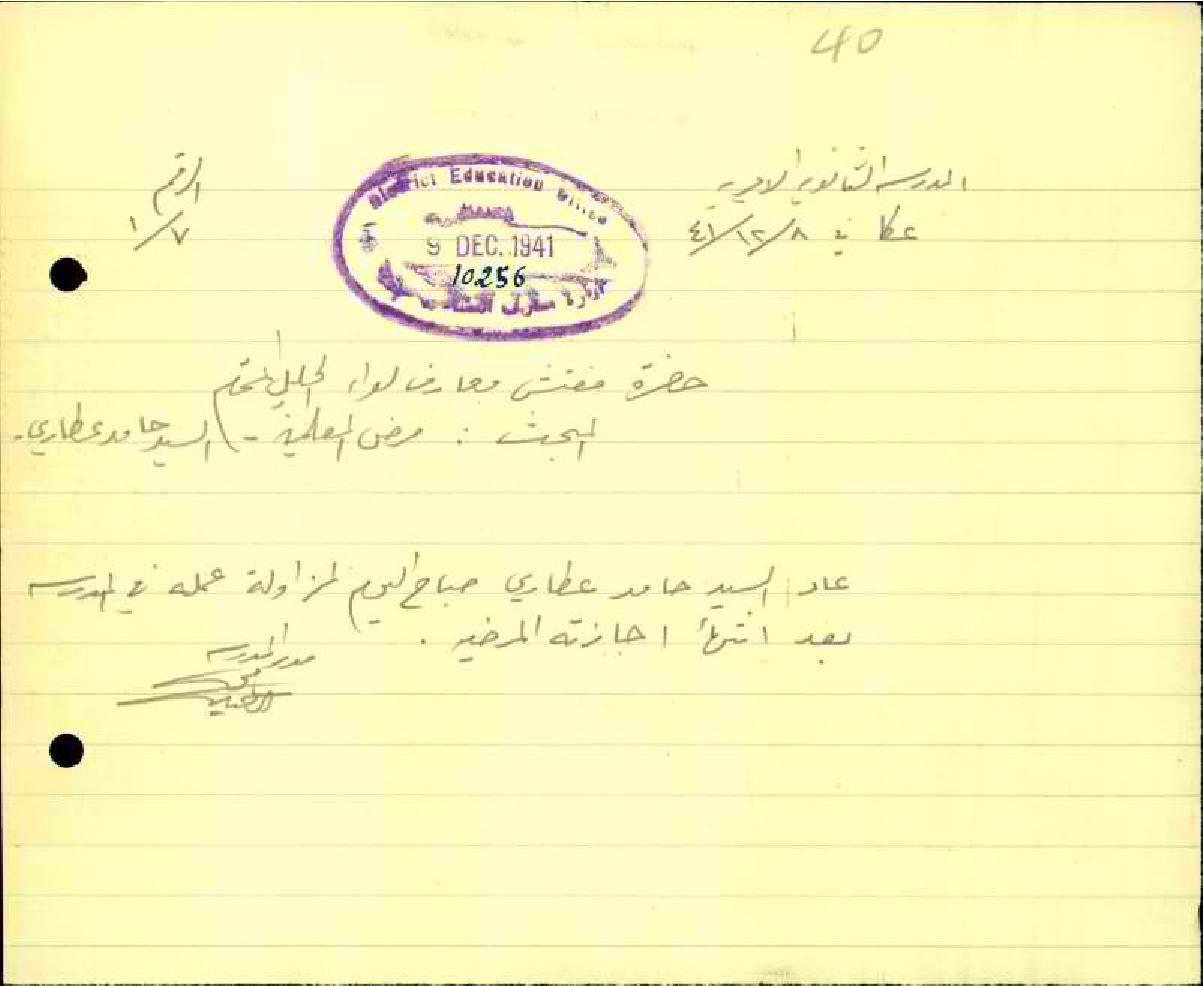 40
المدرسه الثانويه الاميريه
الرقم
عكا في ٨/١٢/٤١
١/٧
District Education Office
9 DEC. 1941
10256
حضرة مفتش معارف لواء الجليل المحترم
المبحث : مرض المعلمين - السيد حامد عطاري.
عاد السيد حامد عطاري صباح اليوم لمزاولة عمله في المدرسه
بعد انتهاء اجازته المرضيه .
مدير المدرسه